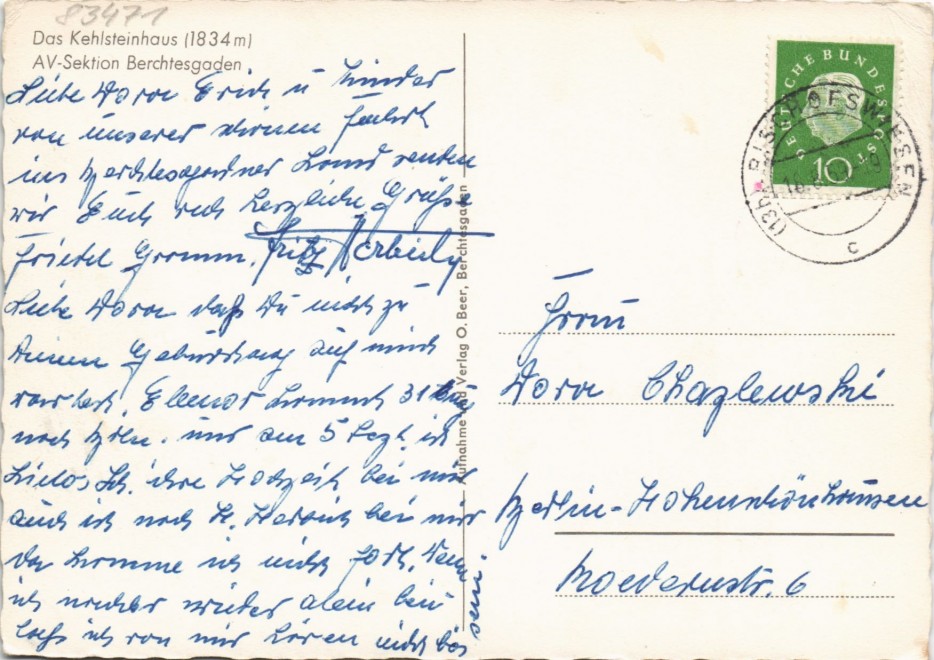 83471
Das Kehlsteinhaus (1834 m)
AV-Sektion Berchtesgaden
Liebe Dora Erich u Kinder
von unserer schönen Fahrt
ins Berchtesgadner Land senden
wir Euch recht herzliche Grüße
Friedel Gramm. Fritz
Liebe Dora daß Du nicht zu
Deinem Geburtstag auf mich
wartest, Elenor kommt 31
nach Bln. und am 5 Sept. ist
ihre Hochzeit bei mir
auch ist noch H. bei mir
da komme ich nicht fort. Wenn
ich nachher wieder alein bin
laß ich von mir hören nicht bös
sein.
Aufnahme und Verlag O. Beer, Berchtesgaden
DEUTSCHE BUNDESPOST
10
(13b) BISCHOFSWIESEN
c
Frau
Dora Chazlewski
Berlin-Hohenschönhausen
6